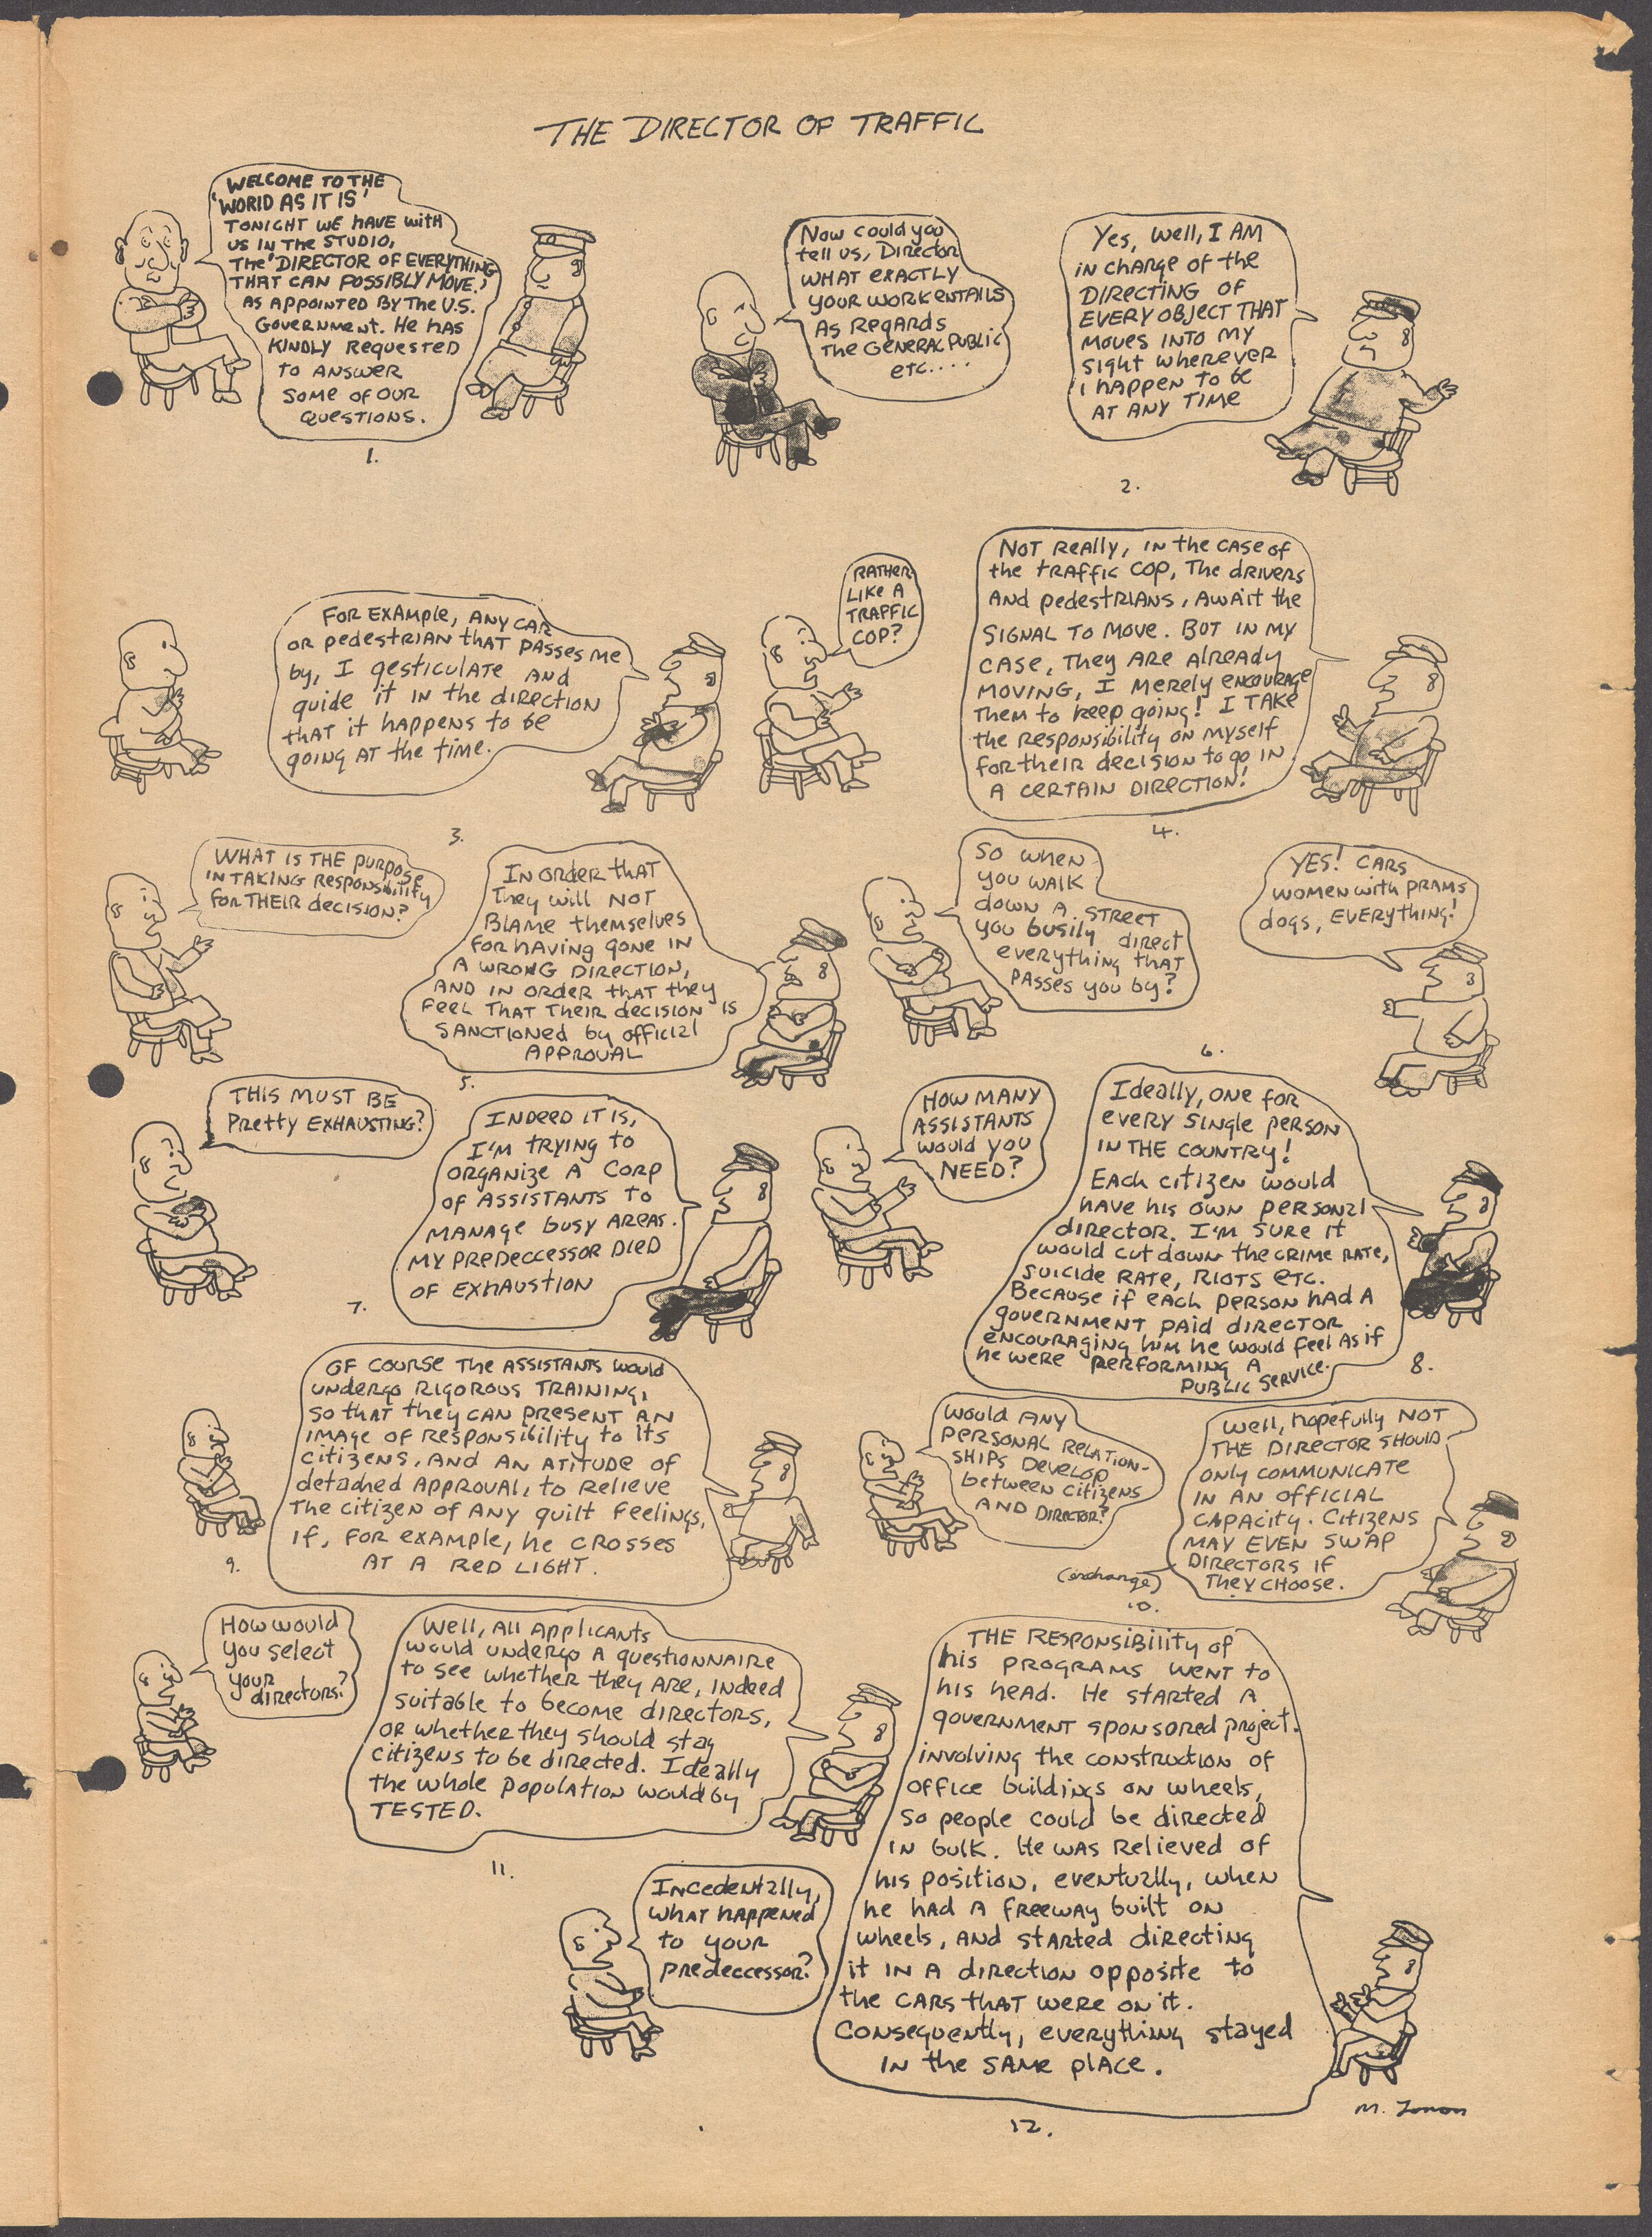 THE DIRECTOR OF TRAFFIC
WELCOME TO THE
'WORLD AS IT IS'
TONIGHT WE HAVE WITH
US IN THE STUDIO,
THE 'DIRECTOR OF EVERYTHING
THAT CAN POSSIBLY MOVE,'
AS APPOINTED BY THE U.S.
GOVERNMENT. HE HAS
KINDLY REQUESTED
TO ANSWER
SOME OF OUR
QUESTIONS.
1.
Now could you
tell us, Director
WHAT EXACTLY
YOUR WORK ENTAILS
AS REGARDS
THE GENERAL PUBLIC
ETC....
Yes, well, I AM
IN CHARGE OF THE
DIRECTING OF
EVERY OBJECT THAT
MOVES INTO MY
SIGHT WHEREVER
I HAPPEN TO BE
AT ANY TIME
2.
FOR EXAMPLE, ANY CAR
OR PEDESTRIAN THAT PASSES ME
by, I gesticulate AND
guide it IN the direction
THAT it happens to be
going AT the time.
3.
RATHER
LIKE A
TRAFFIC
COP?
NOT REALLY, IN the CASE of
the TRAFFIC COP, The drivers
AND pedestRIANS, AWAit the
SIGNAL TO MOVE. BOT IN MY
CASE, They ARE Already
MOVING, I Merely ENCOURAGE
Them to keep going! I TAKE
the RESPONSIBILITY ON MYSELF
for their decision to go IN
A CERTAIN DIRECTION!
4.
WHAT IS THE PURPOSE
IN TAKING RESPONSIBILITY
FOR THEIR DECISION?
IN ORDER THAT
They will NOT
BLAME themselves
FOR HAVING GONE IN
A WRONG DIRECTION,
AND IN ORDER THAT they
FEEL THAT THEIR decision IS
SANCTIONED by official
APPROVAL
5.
SO WHEN
YOU WALK
down A STREET
YOU busily direct
everything THAT
PASSES you by?
YES! CARS
WOMEN WITH PRAMS
dogs, EVERYthing!
6.
THIS MUST BE
Pretty EXHAUSTING?
INDEED IT IS,
I'M TRYING to
ORGANIZE A CORP
OF ASSISTANTS to
MANAGE BUSY AREAS.
MY PREDECCESSOR DIED
OF EXHAUSTION
7.
HOW MANY
ASSISTANTS
would you
NEED?
Ideally, ONE FOR
EVERY SINGLE PERSON
IN THE COUNTRY!
EACH CITIZEN WOULD
HAVE HIS OWN PERSONAL
DIRECTOR. I'M SURE IT
WOULD CUT DOWN THE CRIME RATE,
SUICIDE RATE, RIOTS ETC.
BECAUSE IF EACH PERSON HAD A
GOVERNMENT PAID DIRECTOR
ENCOURAGING HIM HE WOULD FEEL AS IF
HE WERE PERFORMING A
PUBLIC SERVICE.
8.
OF COURSE THE ASSISTANTS WOULD
UNDERGO RIGOROUS TRAINING,
SO THAT THEY CAN PRESENT AN
IMAGE OF RESPONSIBILITY TO ITS
CITIZENS, AND AN ATITUDE OF
detached APPROVAL, to RELIEVE
THE CITIZEN OF ANY guilt feelings,
IF, FOR EXAMPLE, he CROSSES
AT A RED LIGHT.
9.
WOULD ANY
PERSONAL RELATION-
SHIPS DEVELOP
between citizens
AND DIRECTOR?
Well, hopefully NOT
THE DIRECTOR SHOULD
ONLY COMMUNICATE
IN AN OFFICIAL
CAPACITY. CITIZENS
MAY EVEN SWAP
DIRECTORS IF
THEY CHOOSE.
(exchange)
10.
HOW WOULD
you select
your
directors?
Well, All Applicants
would undergo A questionNAIRE
to see whether they ARE, INdeed
suitable to become directors,
OR whether they should stay
citizens to be directed. Ideally
the whole population would by
TESTED.
11.
INCEDENTALLY,
WHAT HAPPENED
to your
PREDECCESSOR?
THE RESPONSIBILITY of
his PROGRAMS WENT to
his head. He started A
GOVERNMENT SPONSORED project.
involving the construction of
office buildings ON wheels,
so people could be directed
IN bulk. He WAS Relieved of
his position, eventually, when
he had A freeway built ON
wheels, AND started directing
it IN A direction opposite to
the CARS that were ON it.
Consequently, everything stayed
IN the SAME place.
12.